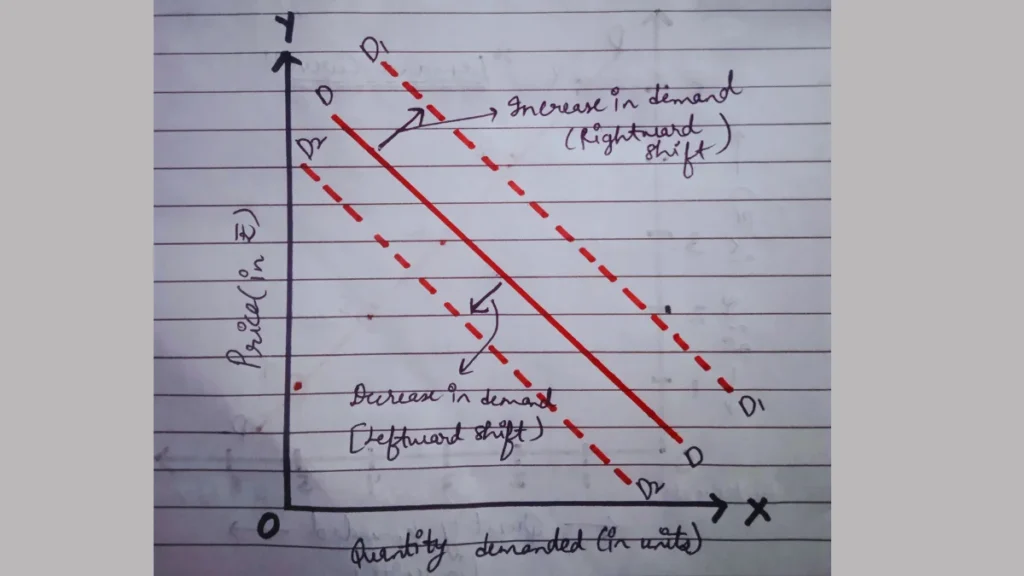 Y
D1
D
D2
Increase in demand
(Rightward
shift)
Price (in ₹)
Decrease in demand
[Leftward shift)
D1
D
D2
O
X
Quantity demanded (in units)